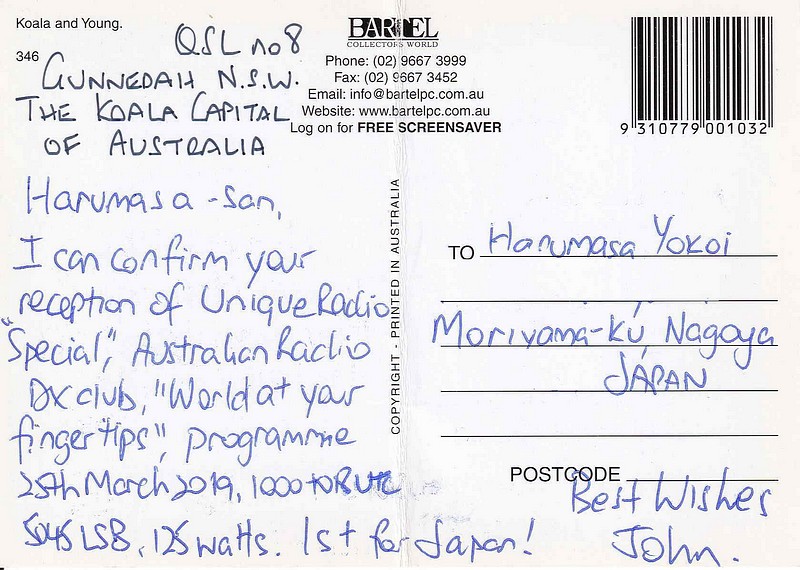 Koala and Young.
346
QSL no 8
GUNNEDAH N.S.W.
THE KOALA CAPITAL
OF AUSTRALIA
BARTEL
COLLECTORS WORLD
Phone: (02) 9667 3999
Fax: (02) 9667 3452
Email: info@bartelpc.com.au
Website: www.bartelpc.com.au
Log on for FREE SCREENSAVER
9 310779 001032
Harumasa-san,
I can confirm your
reception of Unique Radio
"Special", Australian Radio
DX club, "World at your
finger tips", programme
25th March 2019, 1000 UTC
5045 LSB, 125 watts. 1st for Japan!
COPYRIGHT - PRINTED IN AUSTRALIA
TO Harumasa Yokoi
Moriyama-Ku Nagoya
JAPAN
POSTCODE
Best Wishes
John.